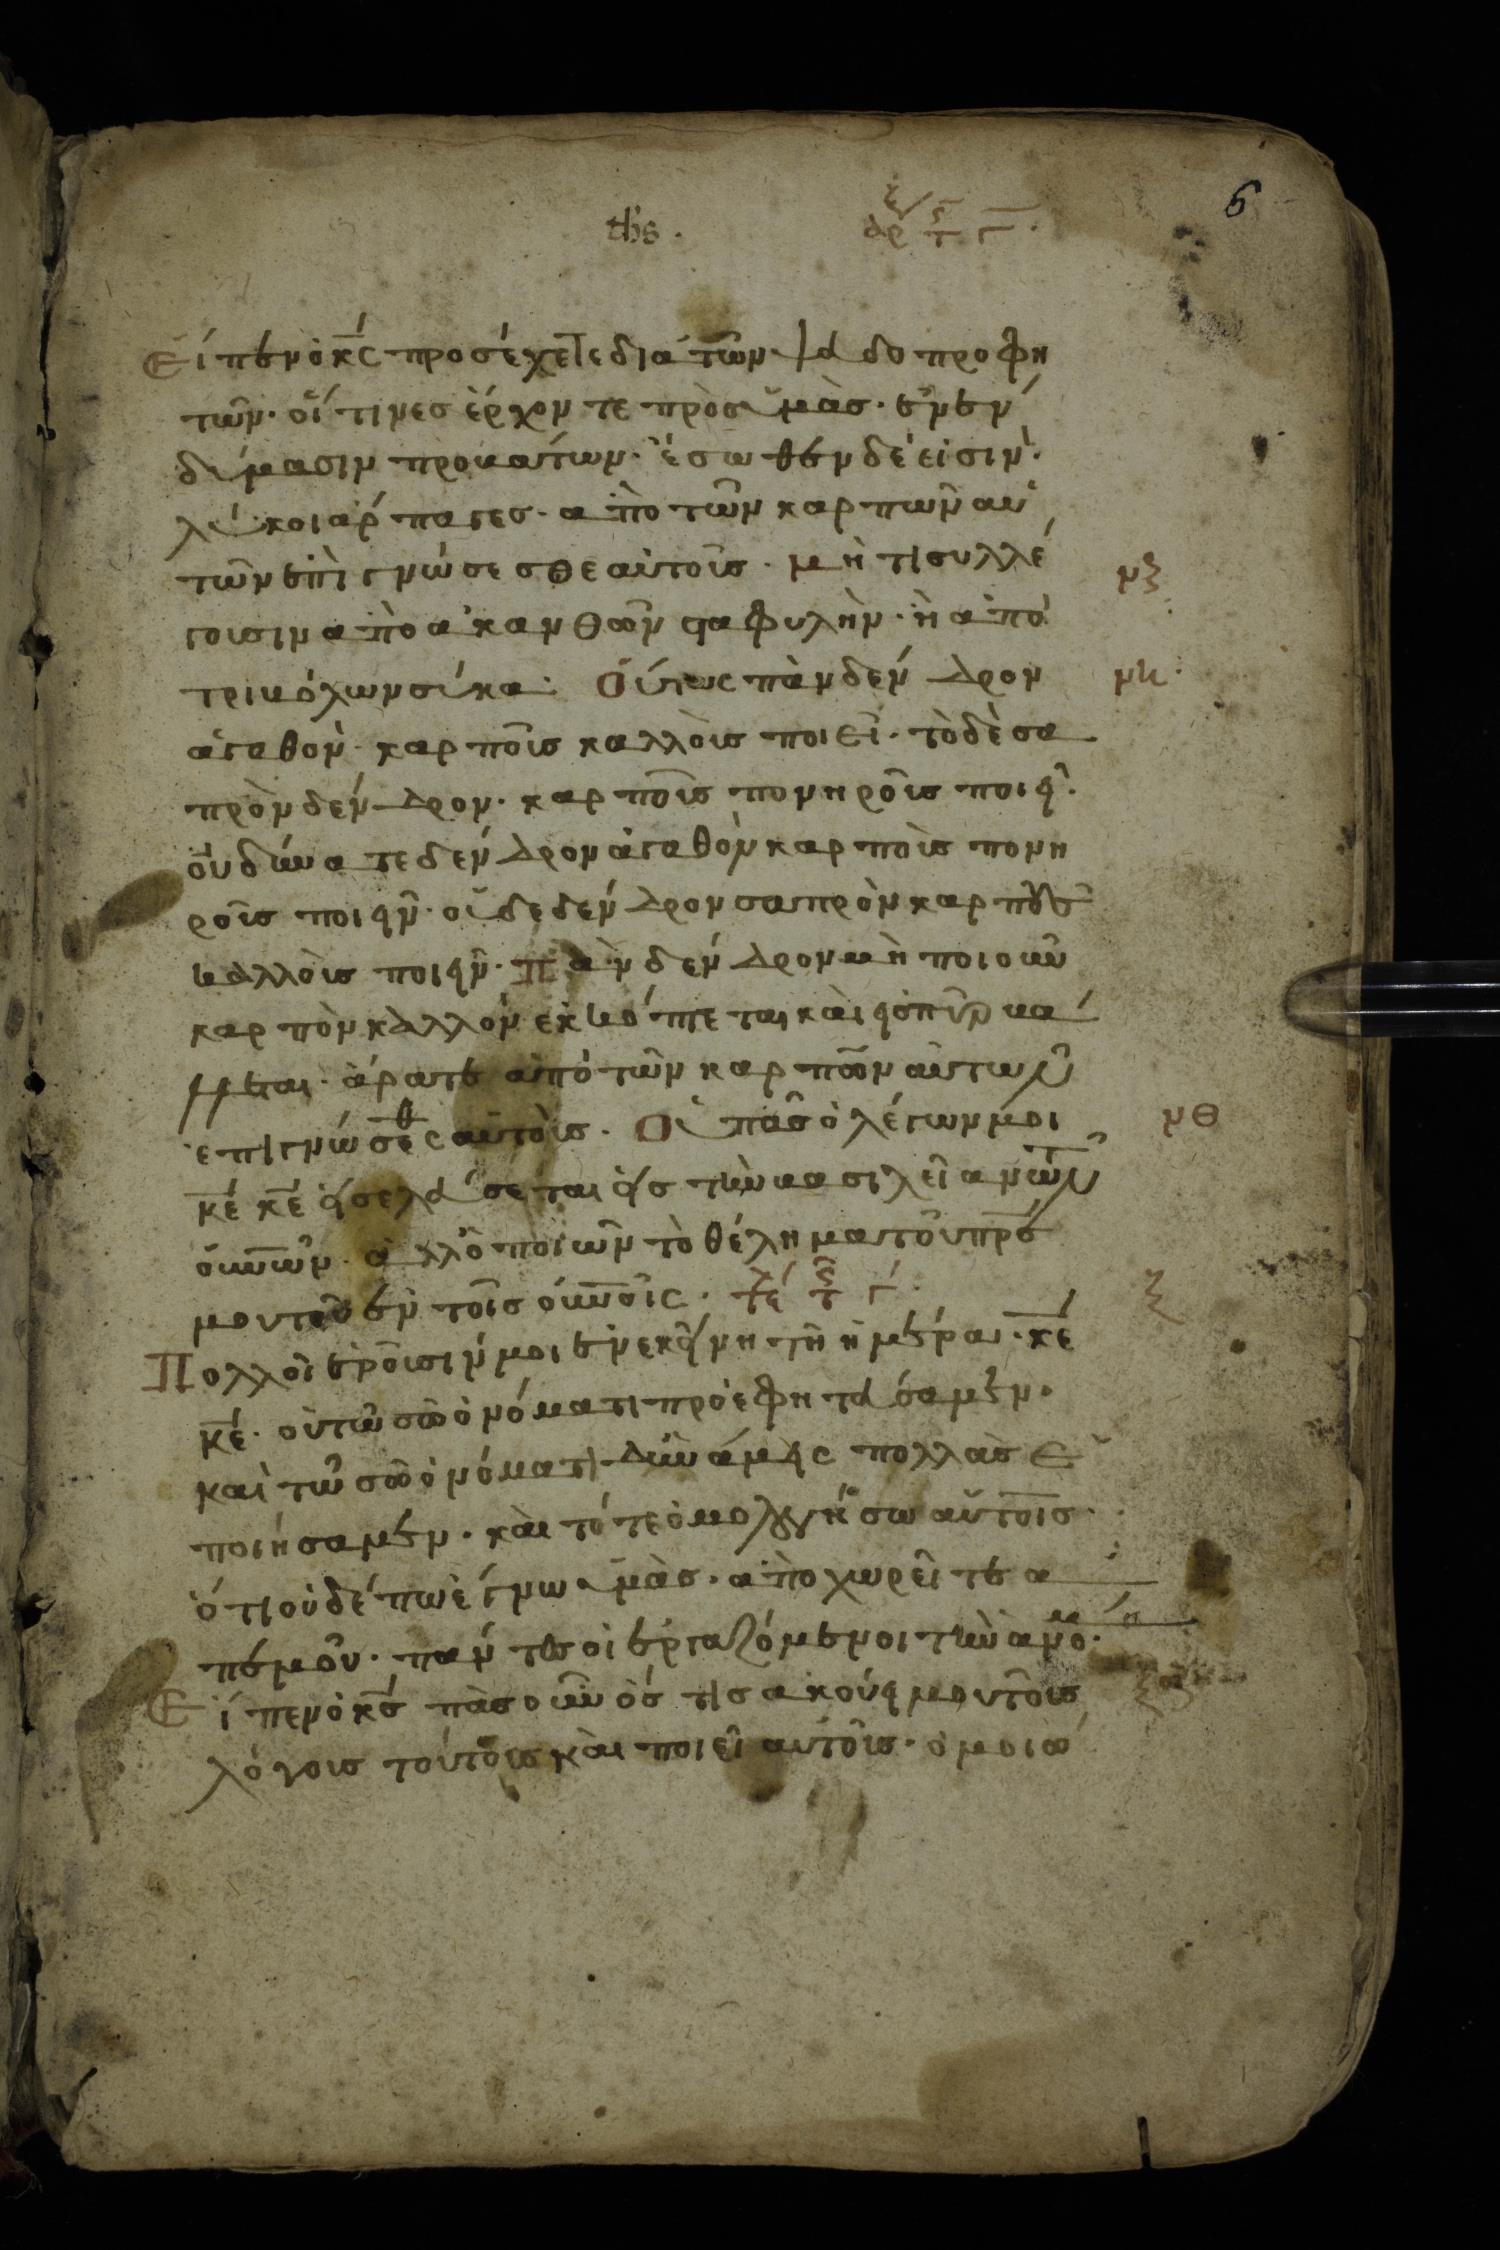 6
Εἶπεν ὁ κς προσέχεται διὰ τῶν ψαδο προφη
τῶν· οἵ τινες ἔρχον τε πρὸς ὑμὰς· ἐν ἐν
δύμασιν προκάτων· ἔσωθεν δέ εἰσιν·
λύκοι αρπαγες· απὸ τῶν καρπῶν αυ
τῶν ἐπιγνώσεσθε αὐτοῖς· μή τι συλλέ
γουσιν απὸ ἀκανθῶν σταφυλὴν· ἢ ἀπὸ
τρικόλων σύκα· Ούτως πὰν δέν δρον
ἀγαθον· καρποῖς καλλοὶς ποιεῖ· τὸ δὲ σα
πρὸν δέν δρον· καρποῖς πονηροῖς ποιεῖ·
οὐ δύνατε δέν δρον ἀγαθὸν καρποὶς πονη
ροῖς ποιεῖν· οὐδε δέν δρον σαπρὸν καρποῦς
καλλοὶς ποιεῖν· Πὰν δέν δρον μὴ ποιοῦν
καρπὸν καλλόν ἐκκόπτεται καὶ εἰς πῦρ κα
εται· ἀρατε ἀπὸ τῶν καρπῶν αὐτων
ἐπιγνώσεσθε αὐτοὶς· Οὐ πᾶς ὁ λέγων μοι
κέ κέ εἰσελάσεται εἰς τὴν κασιλεῖαν τῶν
οὐνῶν· ἀλλὸ ποιῶν τὸ θέλημα τοῦ πρς
μου τοῦ ἐν τοῖς οὐνοῖς·
Πολλοὶ ἐροῦσιν μοι ἐν ἐκείνη τῆ ἡμέραι· κέ
κέ· οὐ τῶ σῶ ὀνόματι προεφητάσαμεν·
καὶ τῶ σῶ ὀνόματι δυνάμεις πολλὰς ε
ποιήσαμεν· καὶ τότε ὁμολογήσω αὐτοῖς
ὅτι οὐδέ πω ἔγνω ὑμὰς· ἀποχωρεῖτε α
π' ἐμοῦ· πάντες οἱ ἐργαζόμενοι τὴν ἀνομ
Εἶπεν ὁ κς πὰς οὖν ὅς τις ακούει μου τοῖς
λόγοις τούτοις καὶ ποιεῖ αὐτοῖς· ὁμοιώ
νζ
νη
νθ
ξ
ξα